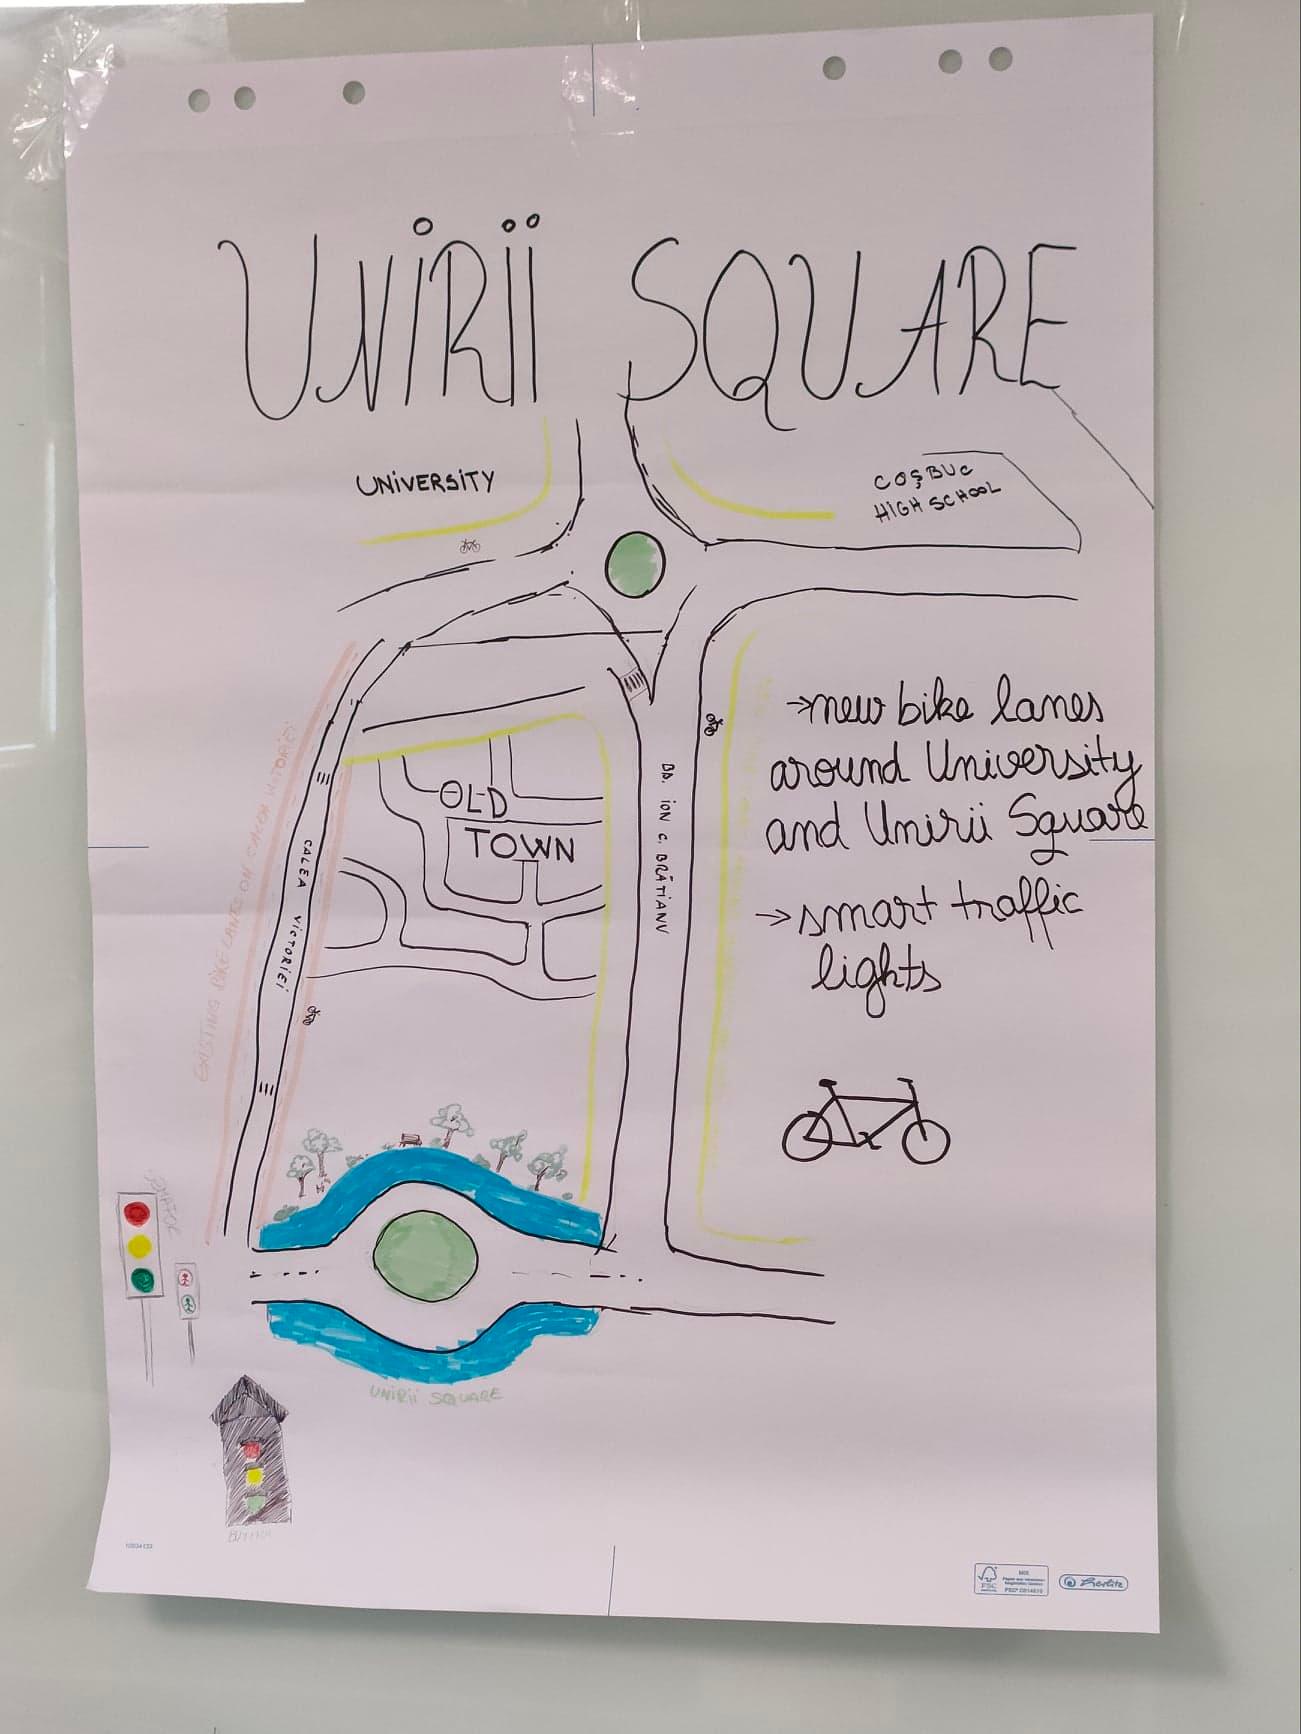 UNiRii SQUARE
UNiVERSiTY
COŞBUC
HiGH SCHOOL
→new bike lanes
around University
and Unirii Square
→smart traffic
lights
OLD
TOWN
BD. iON C. BRĂTiANU
CALEA ViCTORiEi
EXISTING BIKE LANES ON CALEA VICTORIEI
UNiRii SQUARE
10934133
FSC
MIX
herlitz